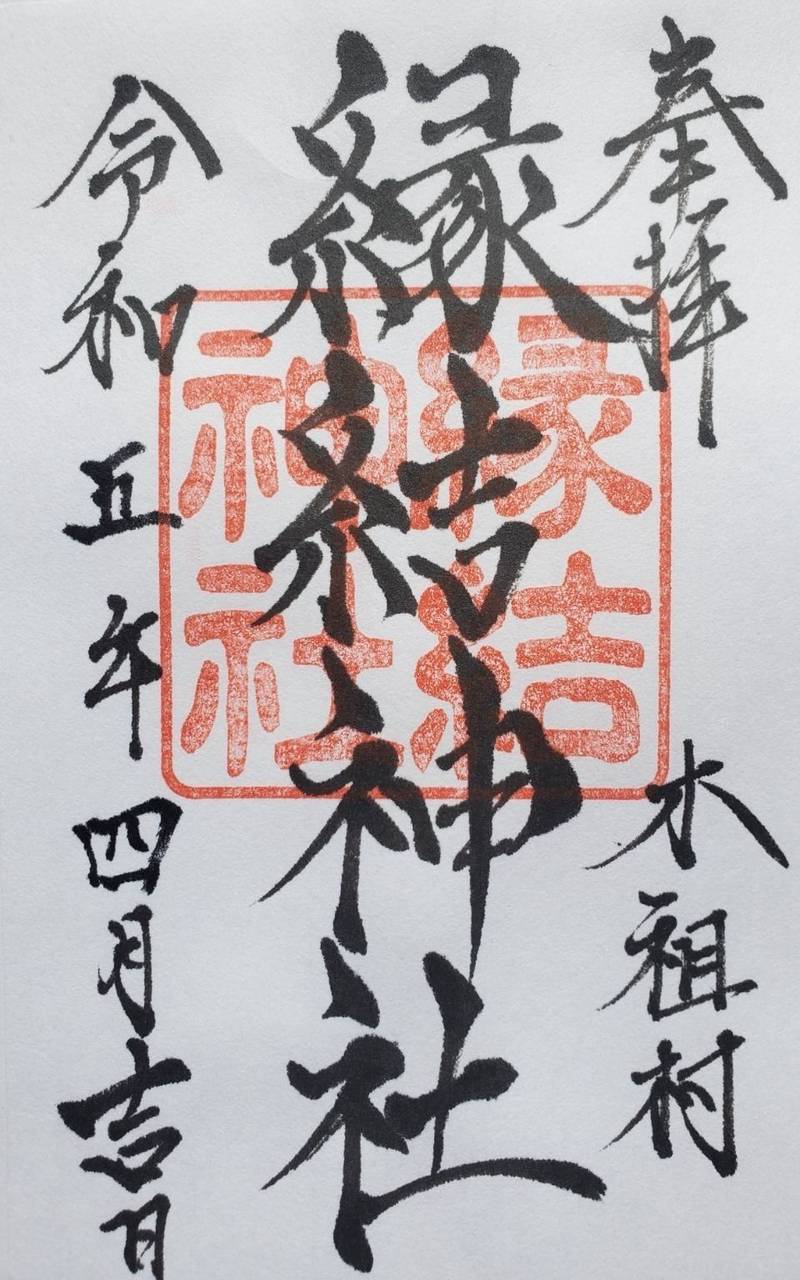 奉拝
木祖村
縁結神社
縁結
神社
令和五年四月吉日